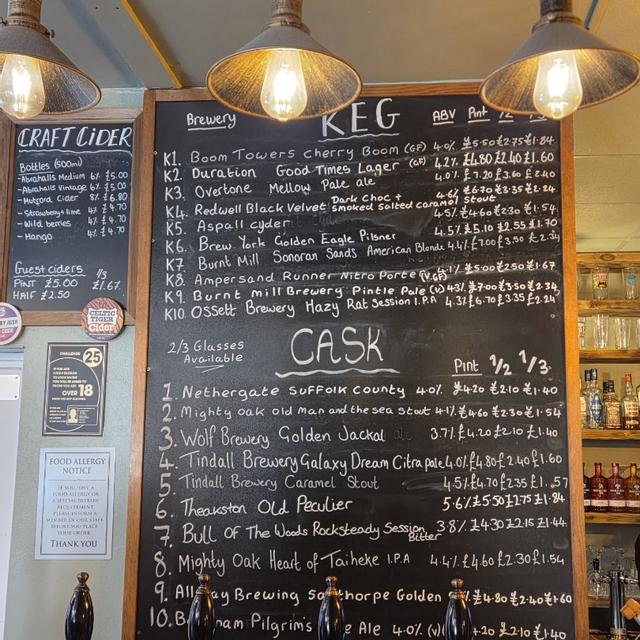 CRAFT CiDER
Bottles (500ml)
-Abrahalls Medium 6% £5.00
-Abrahalls Vintage 6% £5.00
-Mutford Cider 8% £6.80
-Strawberry+lime 4% £4.70
-Wild berries 4% £4.70
-Mango 4% £4.70
Guest ciders 1/3
PiNT £5.00 £1.67
HALF £2.50
CELTIC
TIGER
Cider
CHALLENGE 25
OVER 18
FOOD ALLERGY
NOTICE
IF YOU HAVE A
FOOD ALLERGY OR
A SPECIAL DIETARY
REQUIREMENT
PLEASE INFORM A
MEMBER OF OUR STAFF
BEFORE YOU PLACE
YOUR ORDER
THANK YOU
Brewery KEG ABV Pint 1/2
K1. Boom Towers Cherry Boom (GF) 4.0% £5.50 £2.75 £1.84
K2. Duration Good Times Lager (GF) 4.2% £4.80 £2.40 £1.60
K3. Overtone Mellow Pale ale 4.0% £7.20 £3.60 £2.40
K4. Redwell Black Velvet Dark Choc + smoked salted caramel stout 4.6% £6.70 £3.35 £2.24
K5. Aspall cyder 4.5% £4.60 £2.30 £1.54
K6. Brew York Golden Eagle Pilsner 4.5% £5.10 £2.55 £1.70
K7. Burnt Mill Sonoran Sands American Blonde 4.4% £7.00 £3.50 £2.34
K8. Ampersand Runner Nitro Porter £5.00 £2.50 £1.67
K9. Burnt mill Brewery Pintle Pale (v) 4.3% £7.00 £3.50 £2.34
K10. Ossett Brewery Hazy Rat Session I.P.A 4.3% £6.70 £3.35 £2.24
2/3 Glasses
Available
CASK
Pint 1/2 1/3
1. Nethergate Suffolk County 4.0% £4.20 £2.10 £1.40
2. Mighty oak old Man and the sea stout 4.1% £4.60 £2.30 £1.54
3. Wolf Brewery Golden Jackal 3.7% £4.20 £2.10 £1.40
4. Tindall Brewery Galaxy Dream Citra pale 4.0% £4.80 £2.40 £1.60
5. Tindall Brewery Caramel Stout 4.5% £4.70 £2.35 £1.57
6. Theakston Old Peculier 5.6% £5.50 £2.75 £1.84
7. Bull Of The Woods Rocksteady Session Bitter 3.8% £4.30 £2.15 £1.44
8. Mighty Oak Heart of Taiheke I.P.A 4.4% £4.60 £2.30 £1.54
9. All Day Brewing Golden £4.80 £2.40 £1.60
10. Pilgrim's Ale 4.0% (v) £4.20 £2.10 £1.40